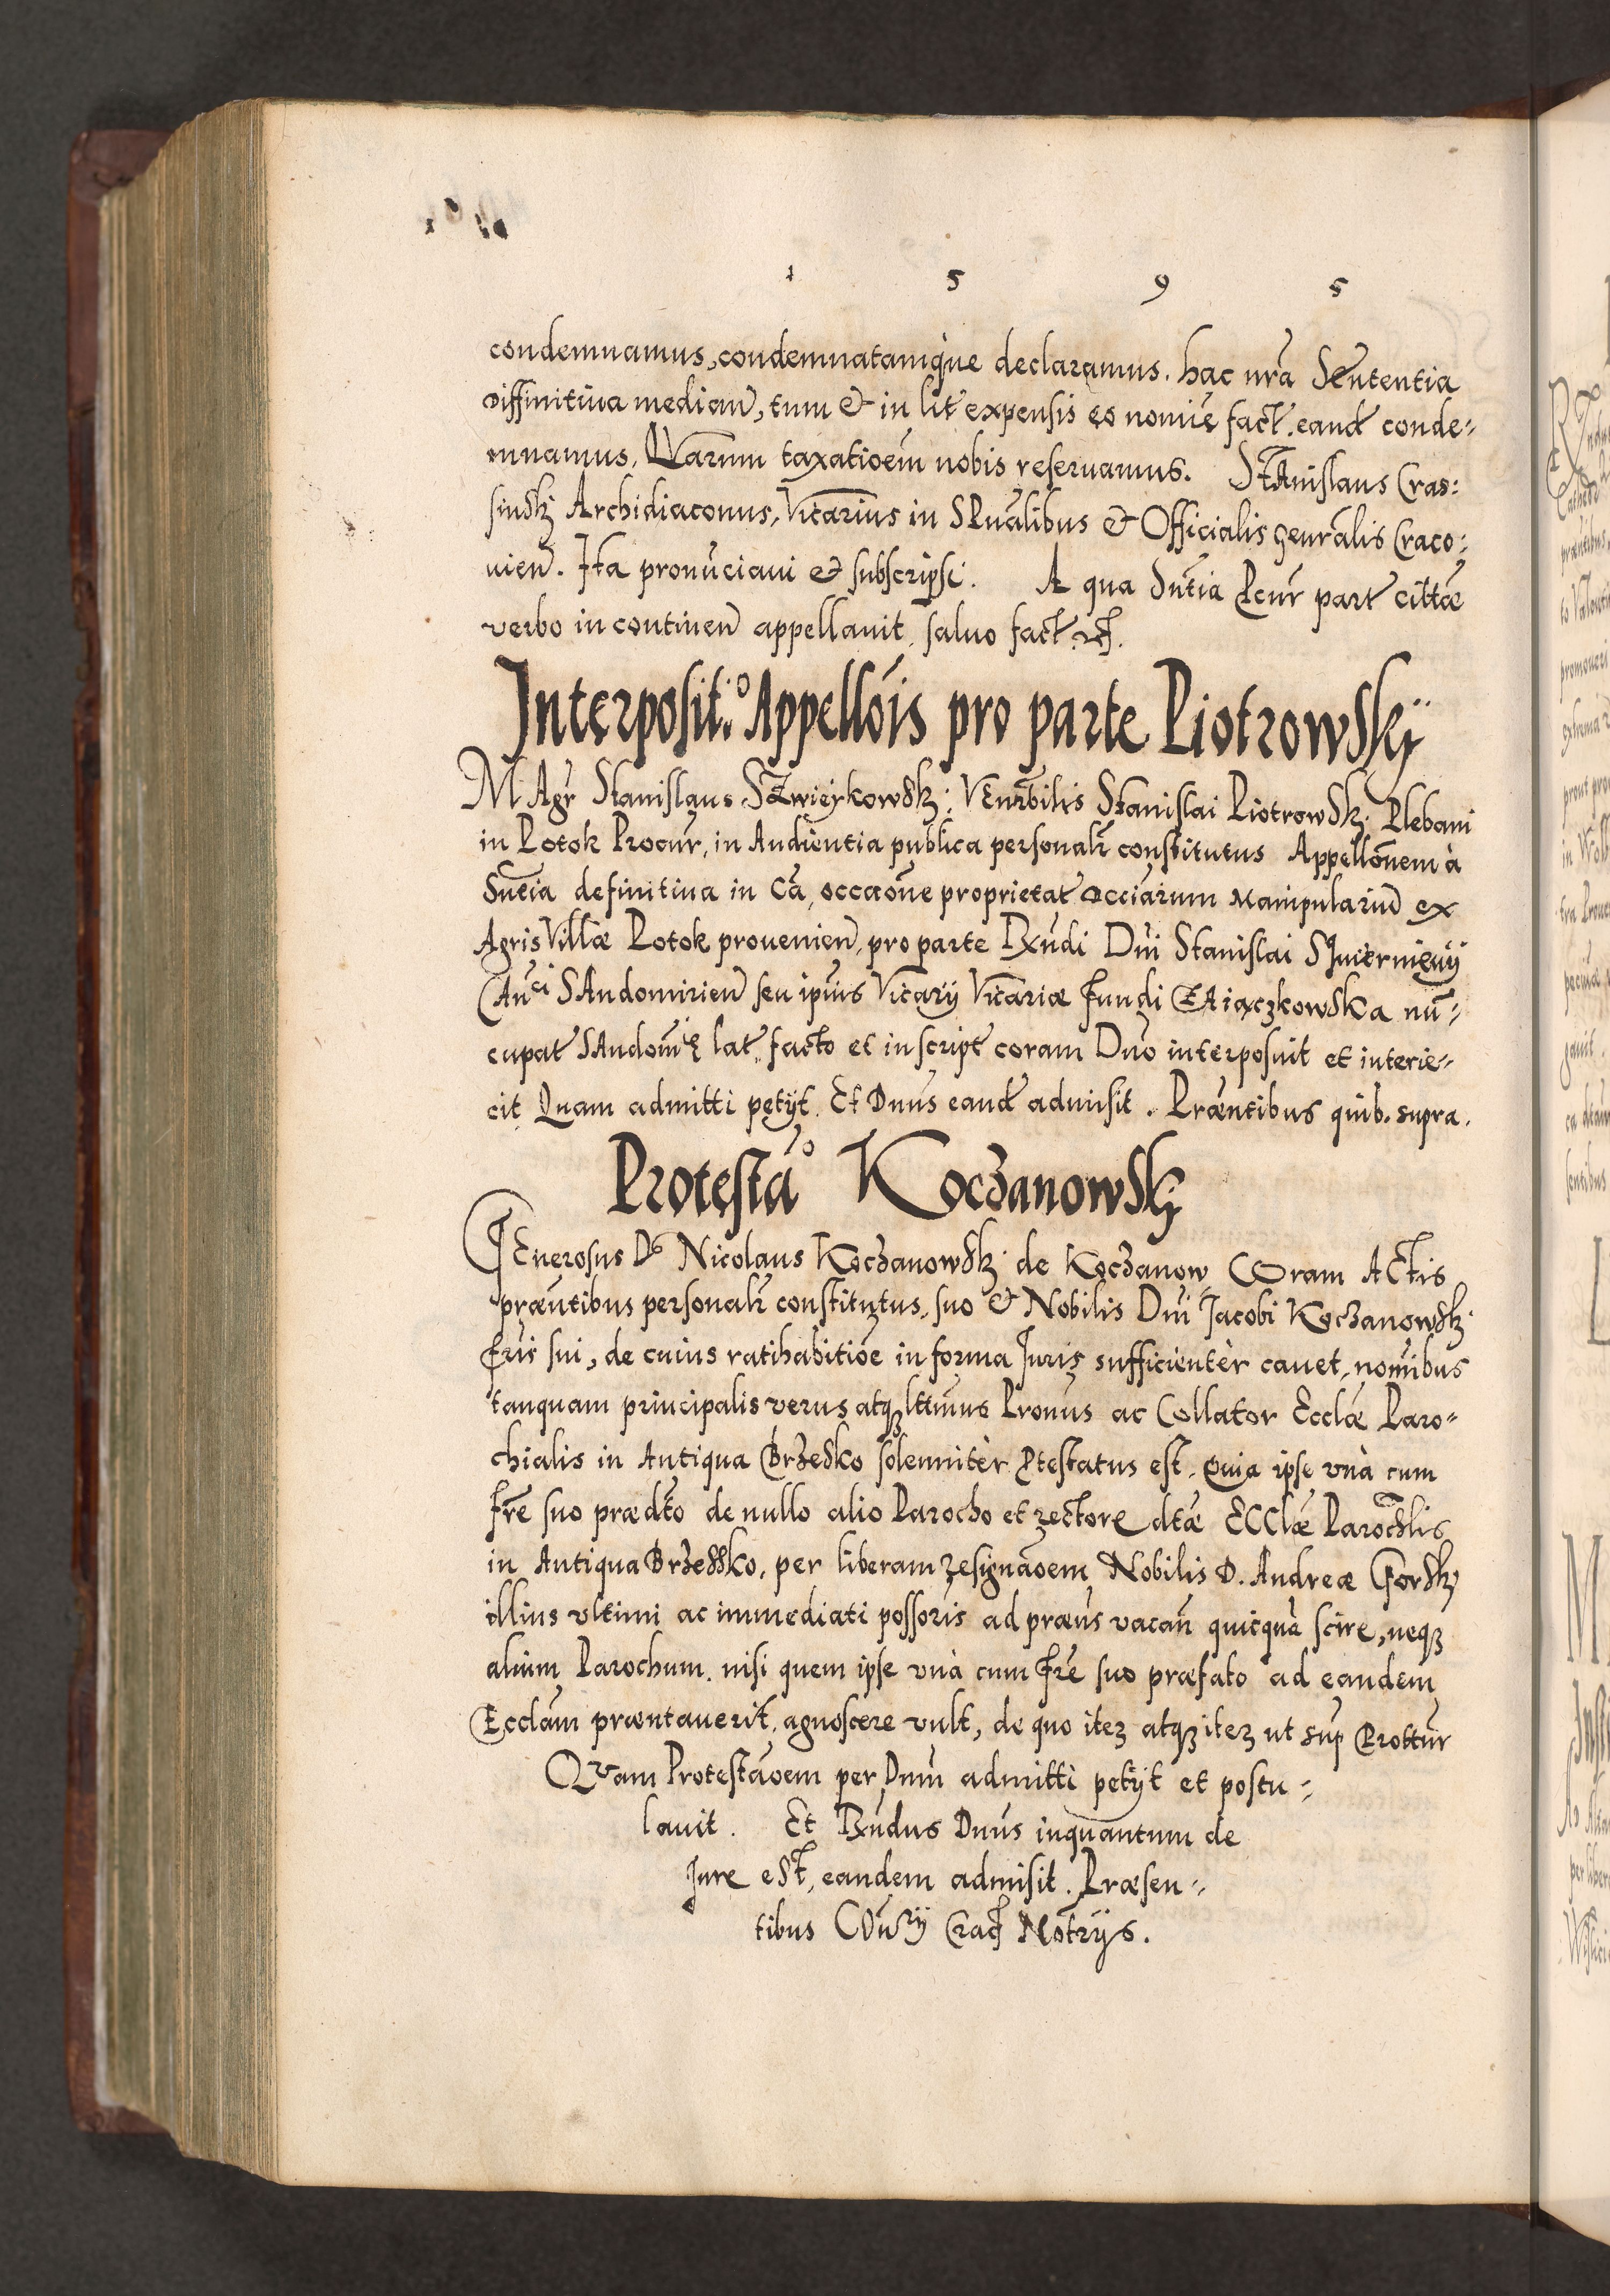 1 5 9 5
condemnamus, condemnatamque declaramus. hac nrã Sententia
diffinitiua median̄, tum & in lit expensis eo nomīe fact. eand conde-
mnamus, Quarum taxatioem nobis reseruamus. Stanislaus Cras:
sinski Archidiaconus, Vicarius in SPualibus & Officialis genralis Craco:
uien̄. Ita pronūciaui et subscripsi. A qua Sntia Pcur part cittæ
verbo in continen̄ appellauit, saluo fact
Interposit:o Appellois pro parte Piotrowskij
MAgr Stanislaus SZwieykowski: VEnrbilis Stanislai Piotrowski Plebani
in Potok Procur, in Audientia publica personalr constitutus Appellonem à
Sntia definitiua in Ca, occaone proprietat Manipulariū ex
Agris Villæ Potok prouenien̄, pro parte Rxndi Dni Stanislai
Canci SAndomirien̄ seu ipius Vicarij Vicariæ fundi nū-
cupat lat, facto et in script coram Dno interposuit et interie-
cit Quam admitti petijt. Et Dnus eand admisit. Præntibus quib. supra.
Protestao Koczanowski
GEnerosus Ds Nicolaus Koczanowski de Koczanow Coram ACtis
præntibus personalr constitutus, suo & Nobilis Dni Jacobi Koczanowski
fris sui, de cuius ratihabitioe in forma Juris sufficienter cauet, nomibus
tanquam principalis verus atqz lttimus Pronus ac Collator Ecclæ Paro-
chialis in Antiqua Brzesko solenniter Ptestatus est. Quia ipse vnà cum
fre suo prædto de nullo alio Parocho et rectore dtæ ECClæ Parochlis
in Antiqua Brzessko, per liberam resignaoem Nobilis D. Andreæ Gorski
illius vltimi ac immediati possoris ad præns vacan̄ quicquà scire, neqz
alium Parochum. nisi quem ipse vnà cum fre suo præfato ad eandem
Ecclam præntauerit, agnoscere vult, de quo itez atqz itez ut sup Prottur
Quam Protestaoem per Dnm admitti petijt et postu-
lauit. Et Rxndus Dnus inquantum de
Jure est, eandem admisit. Præsen-
tibus Crac Notrijs.